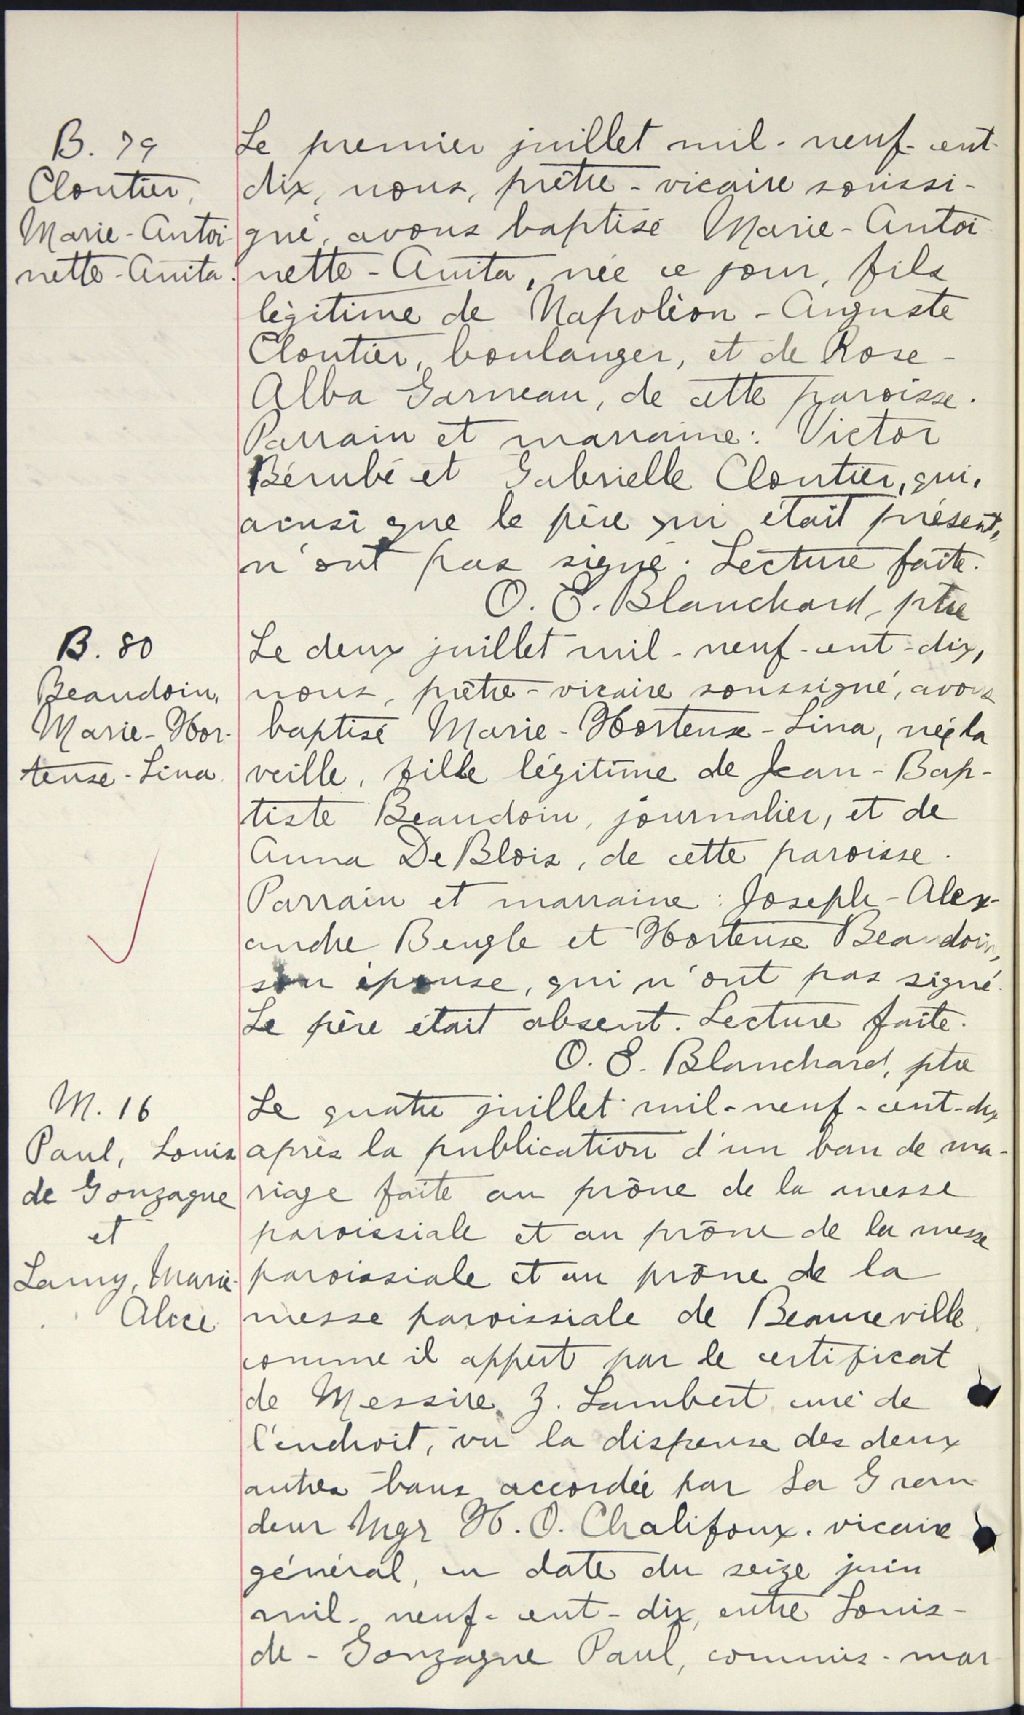 B. 79
Cloutier,
Marie-Antoi
nette-Anita.
Le premier juillet mil-neuf-cent-
dix, nous, prêtre-vicaire soussi-
gné, avons baptisé Marie-Antoi
nette-Anita, née ce jour, fils
légitime de Napoléon-Auguste
Cloutier, boulanger, et de Rose-
Alba Garneau, de cette paroisse.
Parrain et marraine: Victor
Bérubé et Gabrielle Cloutier, qui,
ainsi que le père qui était présent,
n'ont pas signé. Lecture faite.
O. E. Blanchard, ptre
B. 80
Beaudoin,
Marie-Hor-
tense-Lina
Le deux juillet mil-neuf-cent-dix,
nous, prêtre-vicaire soussigné, avons
baptisé Marie-Hortense-Lina, née la
veille, fille légitime de Jean-Bap-
tiste Beaudoin, journalier, et de
Anna DeBlois, de cette paroisse.
Parrain et marraine: Joseph-Alex-
andre Beugle et Hortense Beaudoin,
son épouse, qui n'ont pas signé.
Le père était absent. Lecture faite.
O. E. Blanchard, ptre
M. 16
Paul, Louis
de Gonzague
et
Lamy, Marie-
Alice
Le quatre juillet mil-neuf-cent-dix
après la publication d'un ban de ma-
riage faite au prône de la messe
paroissiale et au prône de la messe
paroissiale et au prône de la
messe paroissiale de Beauceville
comme il appert par le certificat
de Messire Z. Lambert curé de
l'endroit, vu la dispense des deux
autres bans accordée par Sa Gran
deur Mgr H. O. Chalifoux. vicaire
général, en date du seize juin
mil-neuf-cent-dix, entre Louis-
de-Gonzague Paul, commis-mar